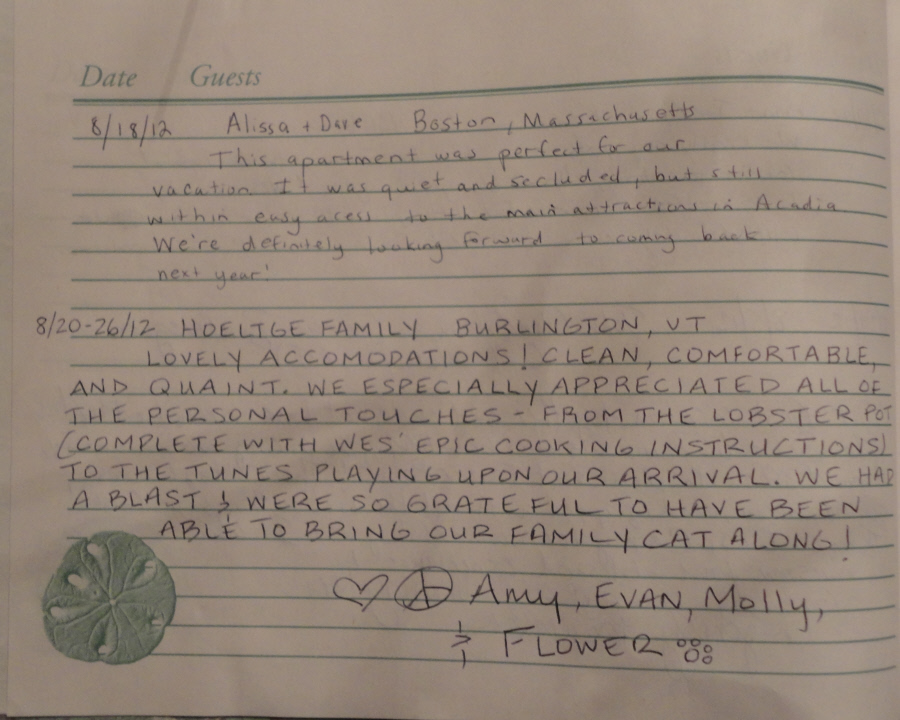 Date Guests
8/18/12 Alissa + Dave Boston, Massachusetts
This apartment was perfect for our
vacation. It was quiet and secluded, but still
within easy acess to the main attractions in Acadia
We're definitely looking forward to coming back
next year!
8/20-26/12 HOELTGE FAMILY BURLINGTON, VT
LOVELY ACCOMODATIONS! CLEAN, COMFORTABLE,
AND QUAINT. WE ESPECIALLY APPRECIATED ALL OF
THE PERSONAL TOUCHES - FROM THE LOBSTER POT
(COMPLETE WITH WES' EPIC COOKING INSTRUCTIONS)
TO THE TUNES PLAYING UPON OUR ARRIVAL. WE HAD
A BLAST & WERE SO GRATEFUL TO HAVE BEEN
ABLE TO BRING OUR FAMILY CAT ALONG!
Amy, EVAN, Molly,
& FLOWER